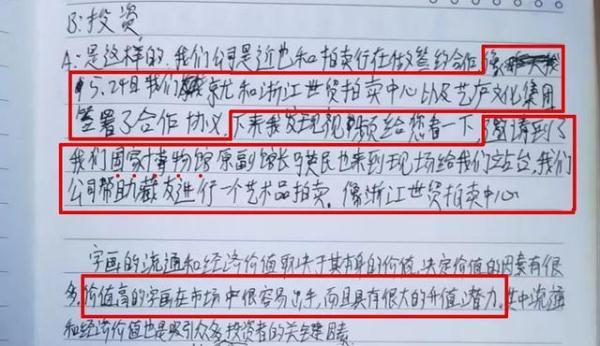 B:投资
A:是这样的.我们公司是近也和拍卖行在做签约合作,像
5.24日我们就和浙江世贸拍卖中心以及艺庐文化集团
签署了合作协议,下来我发现视频给您看一下,邀请到了
我们国家博物馆原副馆长马英民也来到现场给我们站台,我们
公司帮助藏友进行一个艺术品拍卖.像浙江世贸拍卖中心
字画的流通和经济价值取决于其本身的价值,决定价值的因素有很
多,价值高的字画在市场中很容易出手,而且具有很大的升值潜力.其中流通
和经济价值也是吸引众多投资者的关键因素.